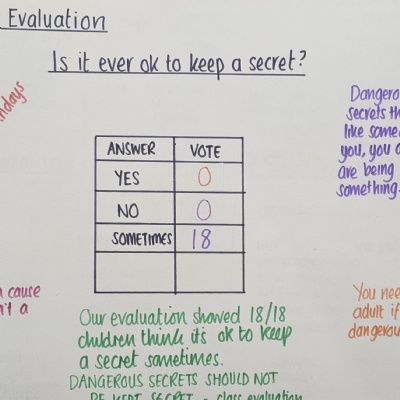 Evaluation
Is it ever ok to keep a secret?
Dangero
secrets th
like some
you, you
are being
something.
ANSWER VOTE
YES 0
NO 0
SOMETIMES 18
cause
Our evaluation showed 18/18
children think it's ok to keep
a secret sometimes.
DANGEROUS SECRETS SHOULD NOT
BE KEPT SECRET - class evaluation
You nee
adult if
dangerou